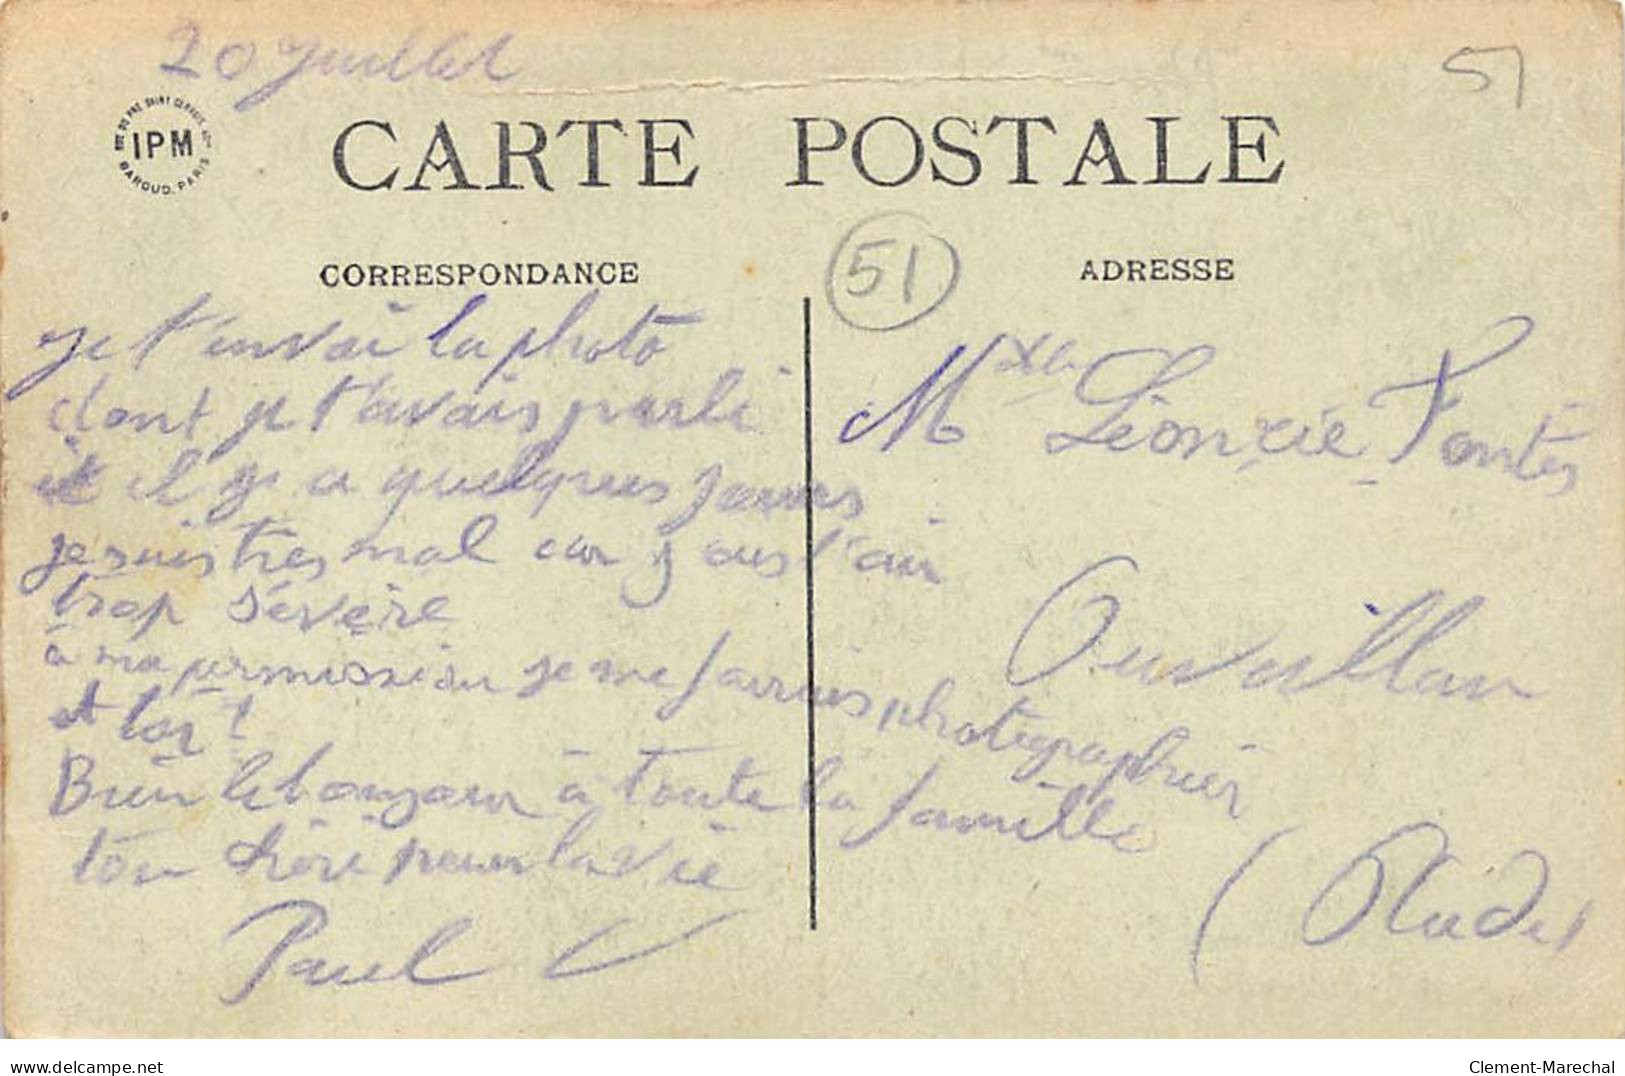 20 Juillet
51
RUE DU PRÉ SAINT GERVAIS
IPM
BAROUD. PARIS
CARTE POSTALE
CORRESPONDANCE
51
ADRESSE
Je t'envoi la photo
dont je t'avais parlé
et il y a quelques jours
je suis tres mal car j'ais l'air
trop sévère
à ma permission je me fairais photographier
et toi !
Bien le bonjour à toute la famille
ton chéri pour la vie
Paul
Mlle Léoncie Pontès
Ouveillan
(Aude)
delcampe.net
Clement-Marechal